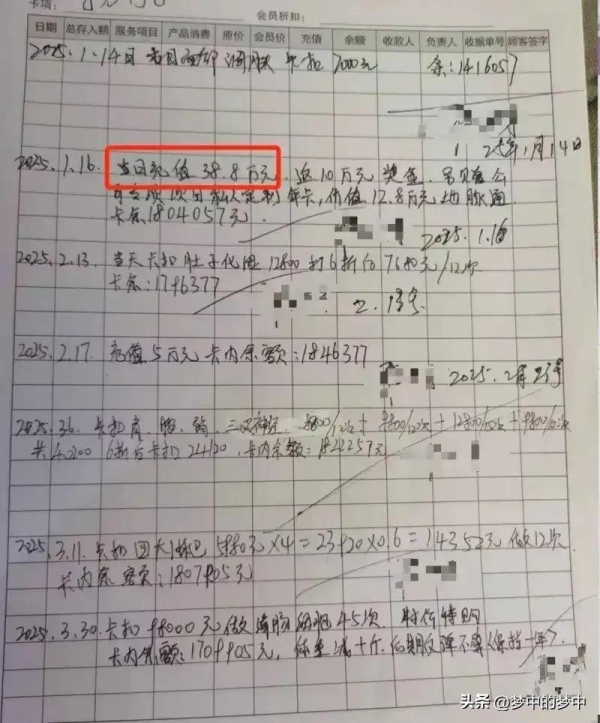 卡项:
会员折扣:
日期 总存入额 服务项目 产品消费 原价 会员价 充值 余额 收款人 负责人 收据单号 顾客签字
2025.1.14日 卡扣 7000元 余:1416057
25年1月14日
2025.1.16. 当日充值 38.8万元. 返10万元 奖金.
年卡,价值12.8万元
卡余1804057元. 2025.1.16
2025.2.13. 当天卡扣肚子 12800 打6折后7680元/12次
卡余:1796377
2.13号
2025.2.17. 充值5万元 卡内余额:1846377
2025.3.6. 卡扣肩、腿、 9800/12次+12800/12次+9800/12次
共40200 6折后卡扣24120、卡内余额:1822257元
2025.3.11.卡扣四大淋巴 5980元×4=23920×0.6=14352元 做12次
卡内余额:1807905元
2025.3.30.卡扣98000元做 45次. 特价特购
卡内余额:1709905元, 体重减十斤. 后期反弹不算(保持一年).
头条 @梦中的梦中